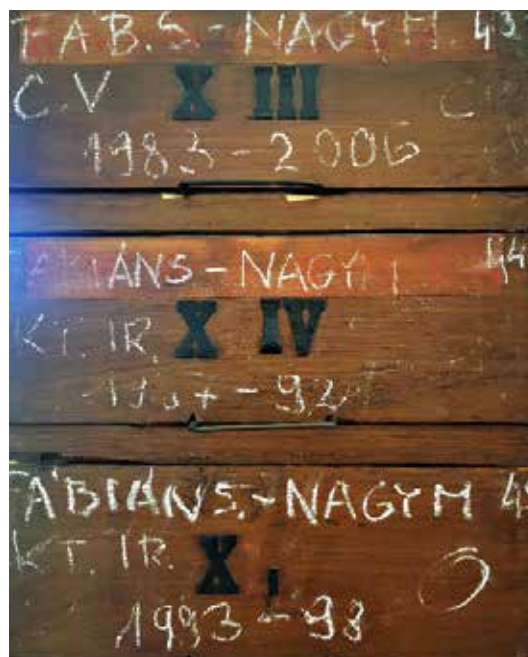 FÁB.S.-NAGYM. 43
C.V X III
1983-2006
NAGYM 44
KT. IR. X IV
-92
FÁBIÁNS.-NAGYM
KT. IR. X
1993-98